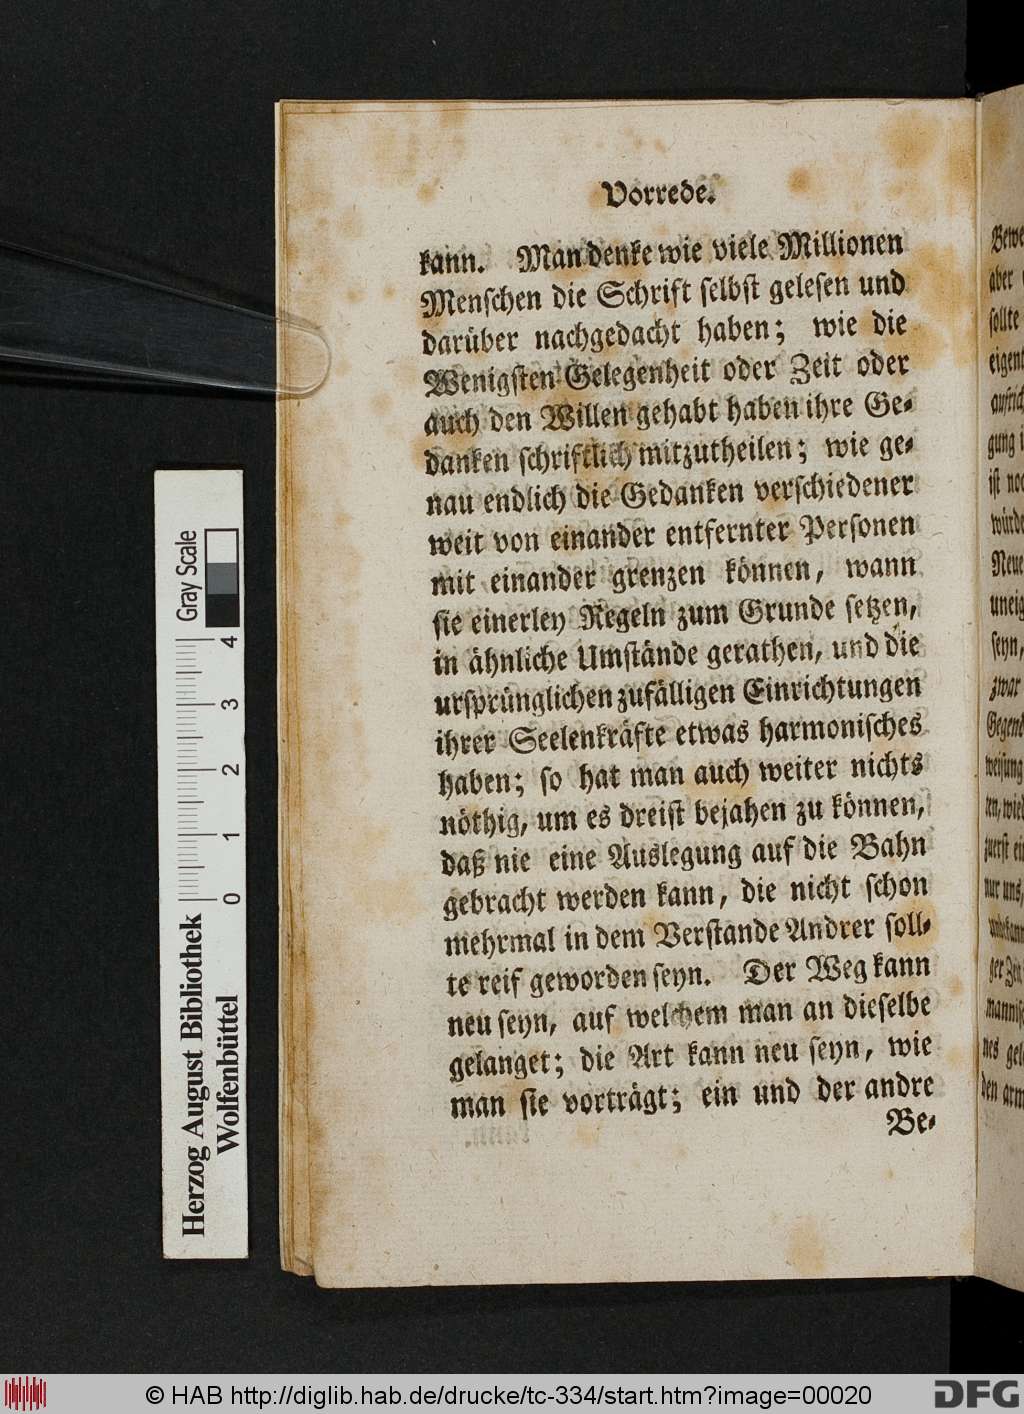 Vorrede.
kann. Man denke wie viele Millionen
Menschen die Schrift selbst gelesen und
darüber nachgedacht haben; wie die
Wenigsten Gelegenheit oder Zeit oder
auch den Willen gehabt haben ihre Ge-
danken schriftlich mitzutheilen; wie ge-
nau endlich die Gedanken verschiedener
weit von einander entfernter Personen
mit einander grenzen können, wann
sie einerley Regeln zum Grunde setzen,
in ähnliche Umstände gerathen, und die
ursprünglichen zufälligen Einrichtungen
ihrer Seelenkräfte etwas harmonisches
haben; so hat man auch weiter nichts
nöthig, um es dreist bejahen zu können,
daß nie eine Auslegung auf die Bahn
gebracht werden kann, die nicht schon
mehrmal in dem Verstande Andrer soll-
te reif geworden seyn. Der Weg kann
neu seyn, auf welchem man an dieselbe
gelanget; die Art kann neu seyn, wie
man sie vorträgt; ein und der andre
Be-
aber
sollte
ist
seyn,
zwar
nur uns,
Gray Scale
0 1 2 3 4
Herzog August Bibliothek
Wolfenbüttel
© HAB http://diglib.hab.de/drucke/tc-334/start.htm?image=00020
DFG